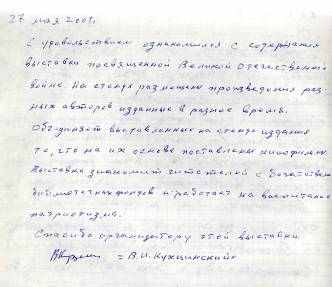 27 мая 2005г.
С удовольствием ознакомился с содержанием
выставки посвященной Великой Отечественной
войне. На стенде размещены произведения раз-
ных авторов изданные в разное время.
Объединяет выставленные на стенде издания
то, что на их основе поставлены кинофильмы.
Выставка знакомит читателей с богатством
библиотечных фондов и работает на воспитание
патриотизма.
Спасибо организатору этой выставки
В.И.